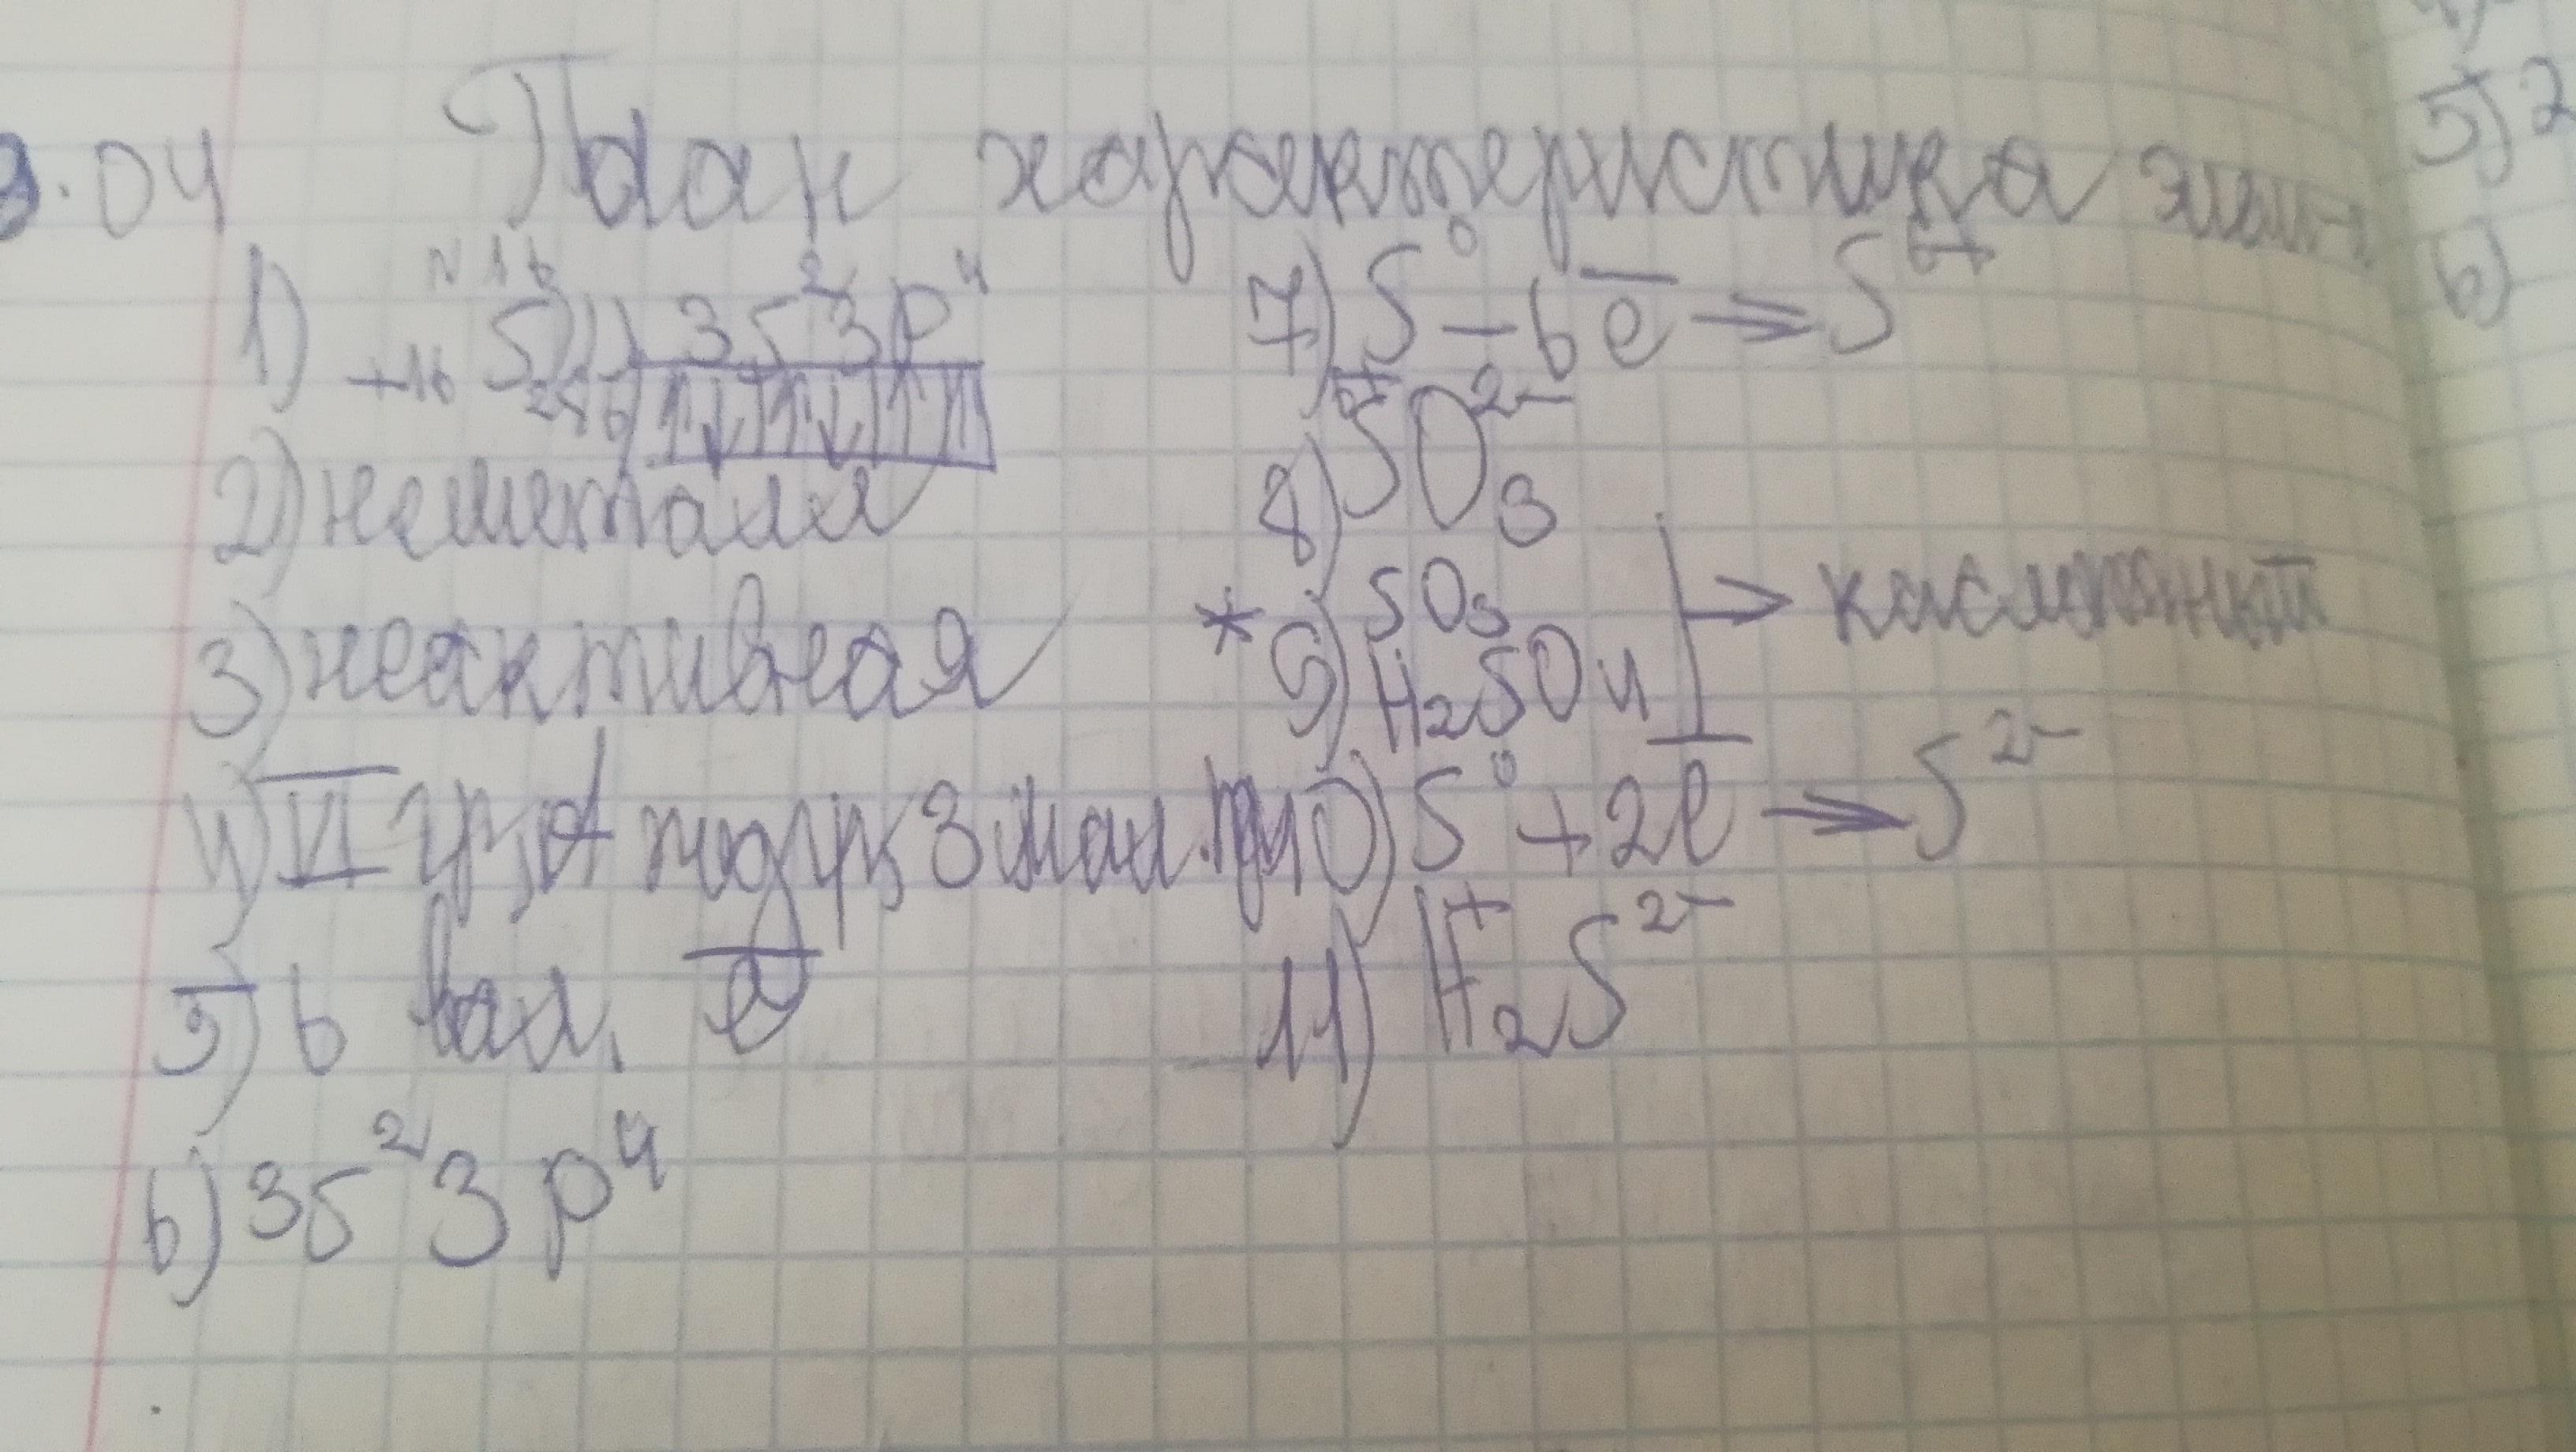 9.04 План характеристика элем-
1) N16 +16 S 2 8 6 3s²3p⁴
↑↓ ↑↓ ↑ ↑
2) неметалл
3) неактивная
4) VI гр, A подгр, 3 мал.
5) 6 вал. e̅
6) 3s²3p⁴
7) S⁰ – 6e̅ → S⁶⁺
8) S⁶⁺O²⁻₃
* 9) SO₃
H₂SO₄ → кислотный
10) S⁰ + 2e̅ → S²⁻
11) H⁺₂S²⁻
5) 2
6)